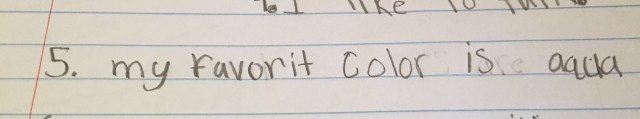 to I like to
5. my favorit color is aqua